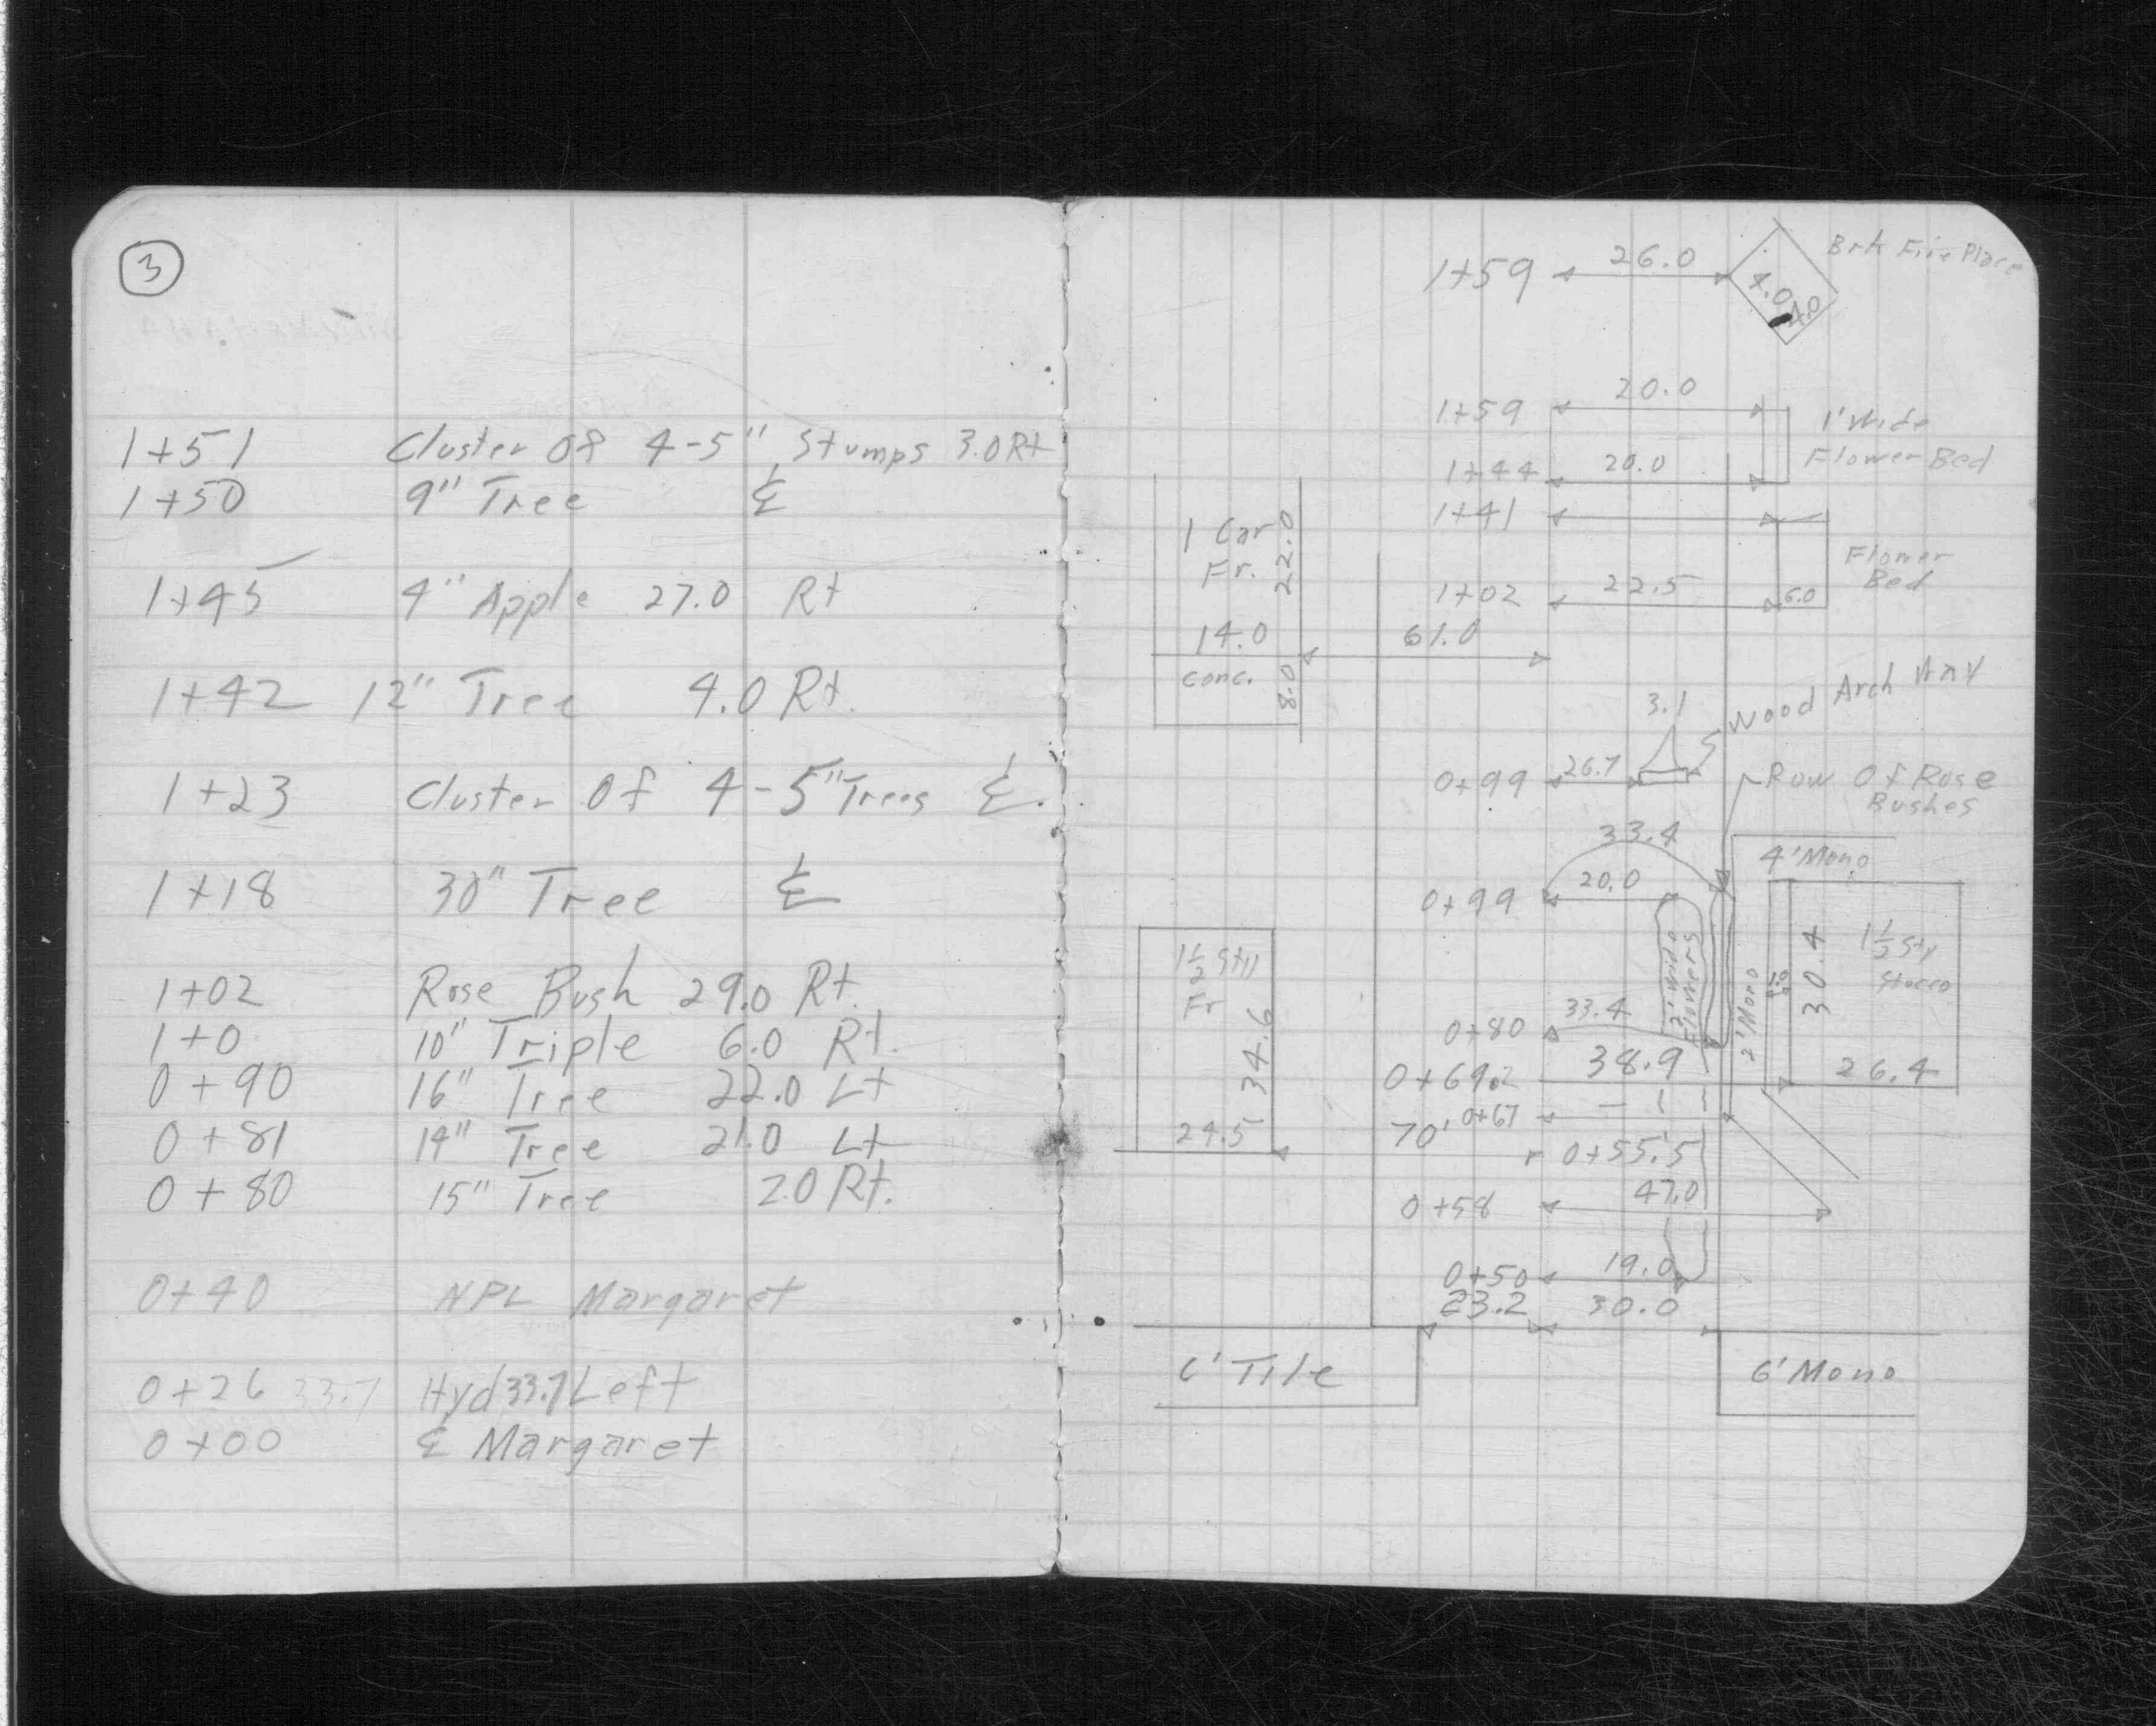 3
1+51 Cluster Of 4-5" Stumps 3.0 Rt
1+50 9" Tree ℄
1+45 4" Apple 27.0 Rt
1+42 12" Tree 4.0 Rt.
1+23 Cluster Of 4-5" Trees ℄.
1+18 30" Tree ℄
1+02 Rose Bush 29.0 Rt.
1+0 10" Triple 6.0 Rt.
0+90 16" Tree 22.0 Lt
0+81 14" Tree 21.0 Lt
0+80 15" Tree 2.0 Rt.
0+40 NPL Margaret
0+26 33.7 Hyd 33.7 Left
0+00 ℄ Margaret
1+59 26.0
4.0
4.0
Brk Fire Place
1+59 20.0
1' Wide
Flower Bed
1+44 20.0
1+41
Flower
Bed
1+02 22.5 6.0
1 Car
Fr.
22.0
14.0
61.0
Conc.
8.0
3.1
Wood Arch Way
0+99 26.7
Row Of Rose
Bushes
33.4
4' Mono
0+99 20.0
3' Wide
Flowers
2' Mono
30.4
1½ Sty
Stucco
26.4
1½ Sty
Fr
34.6
24.5
0+80 33.4
0+69.2 38.9
0+67
70' 0+55.5
0+58 47.0
0+50 19.0
23.2 30.0
6' Tile
6' Mono